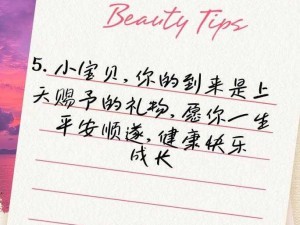 Beauty Tips
5. 小宝贝，你的到来是上
天赐予的礼物，愿你一生
平安顺遂，健康快乐
成长